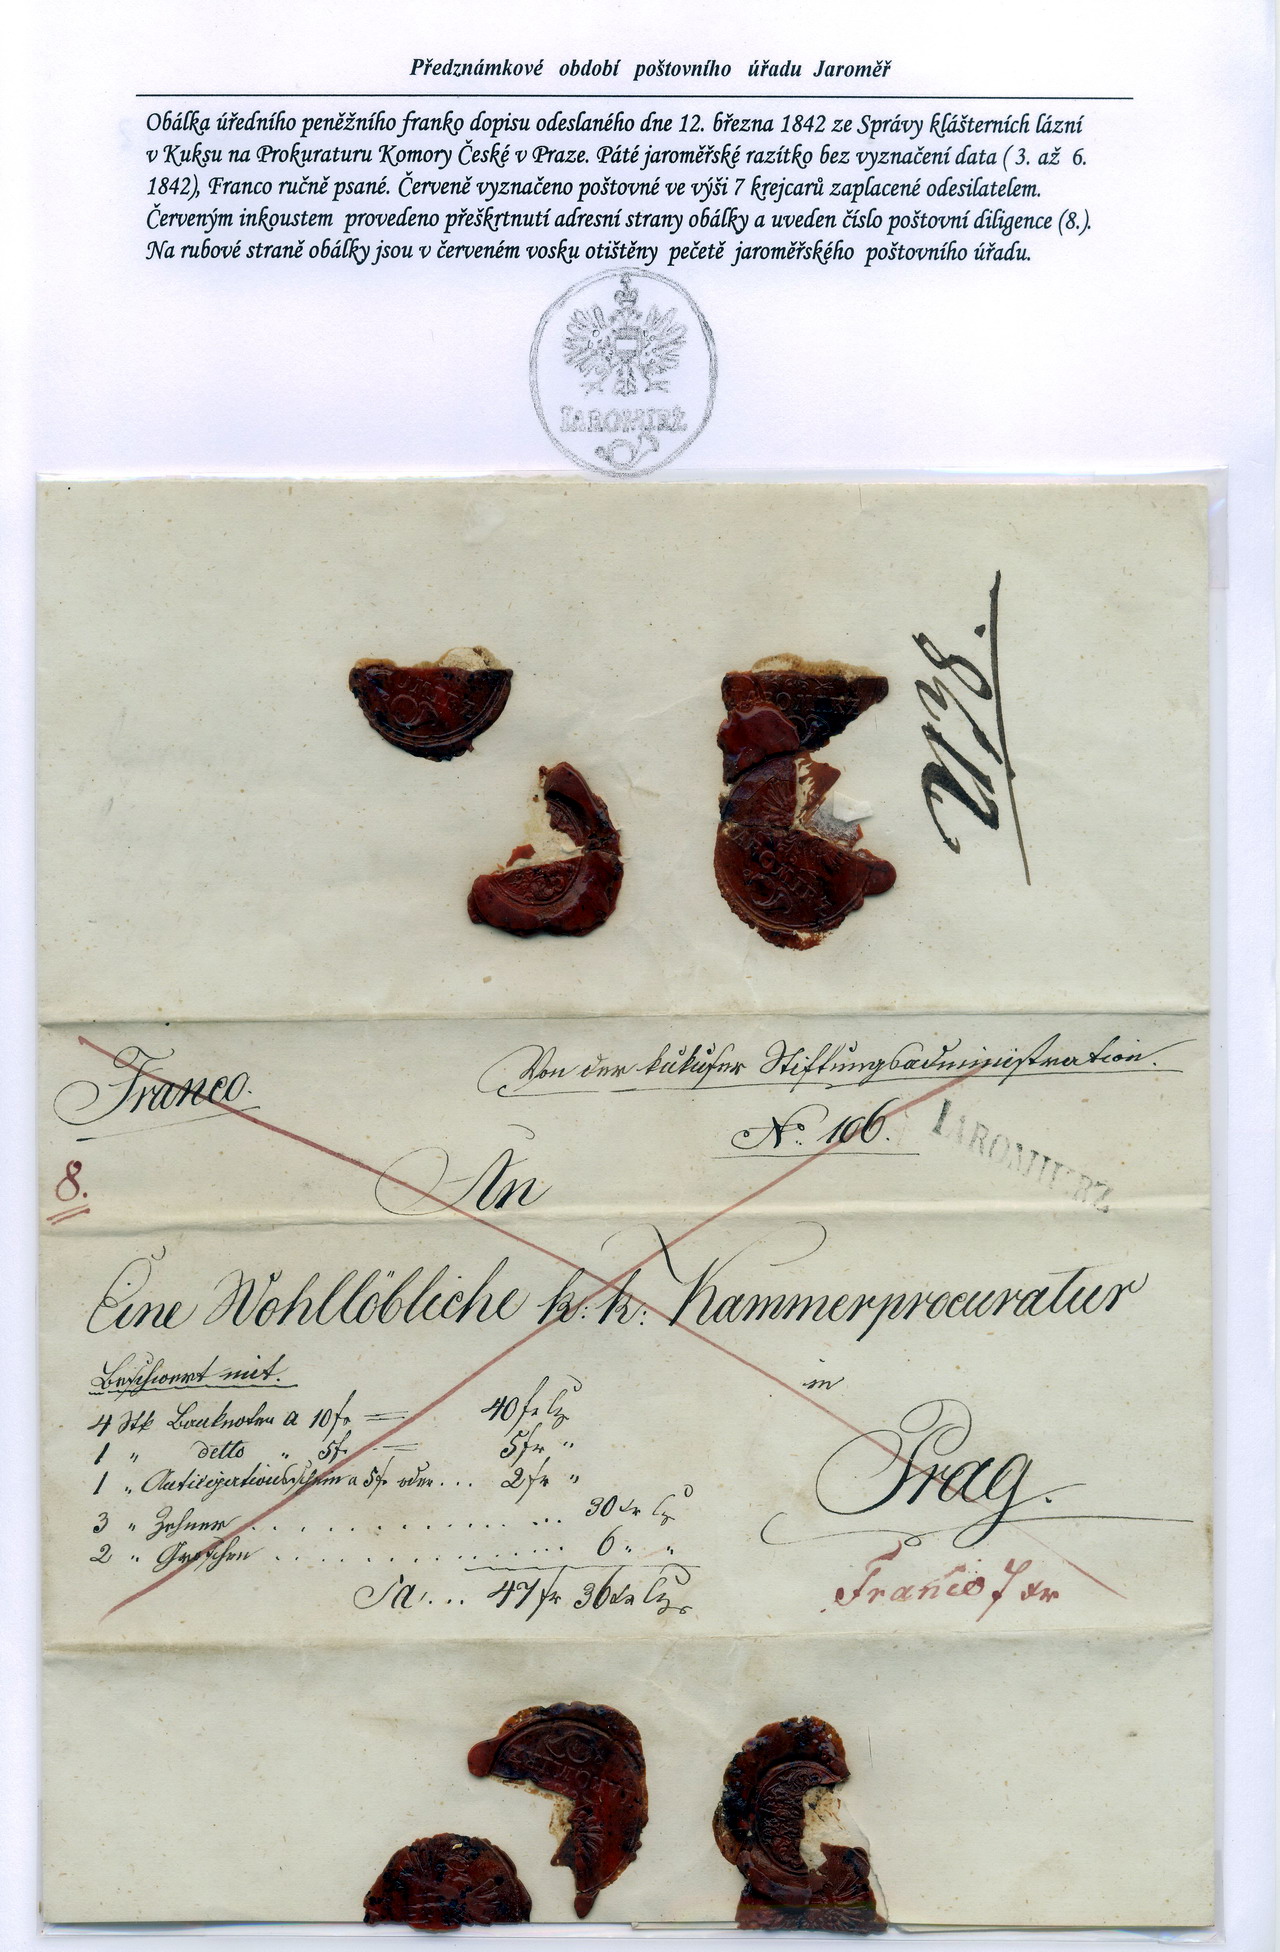 Předznámkové období poštovního úřadu Jaroměř
Obálka úředního peněžního franko dopisu odeslaného dne 12. března 1842 ze Správy klášterních lázní
v Kuksu na Prokuraturu Komory České v Praze. Páté jaroměřské razítko bez vyznačení data ( 3. až 6.
1842), Franco ručně psané. Červeně vyznačeno poštovné ve výši 7 krejcarů zaplacené odesilatelem.
Červeným inkoustem provedeno přeškrtnutí adresní strany obálky a uveden číslo poštovní diligence (8.).
Na rubové straně obálky jsou v červeném vosku otištěny pečetě jaroměřského poštovního úřadu.
IAROMIERZ
Franco.
Von der kukuser Stiftungsadministration.
No. 106.
IAROMIERZ
8.
An
Eine Wohllöbliche k: k: Kammerprocuratur
Beschwert mit.
in
4 Stk Banknoten a 10 fr = 40 fr
1 " detto " 5 fr = 5 fr "
1 " Anticipationsschein a 5 fr oder ... 2 fr "
Prag.
3 " Zehner . . . . . . . . . 30 xr
2 " Groschen . . . . . . . . . 6 " "
Sa. ... 47 fr 36 xr
Franco 7 xr